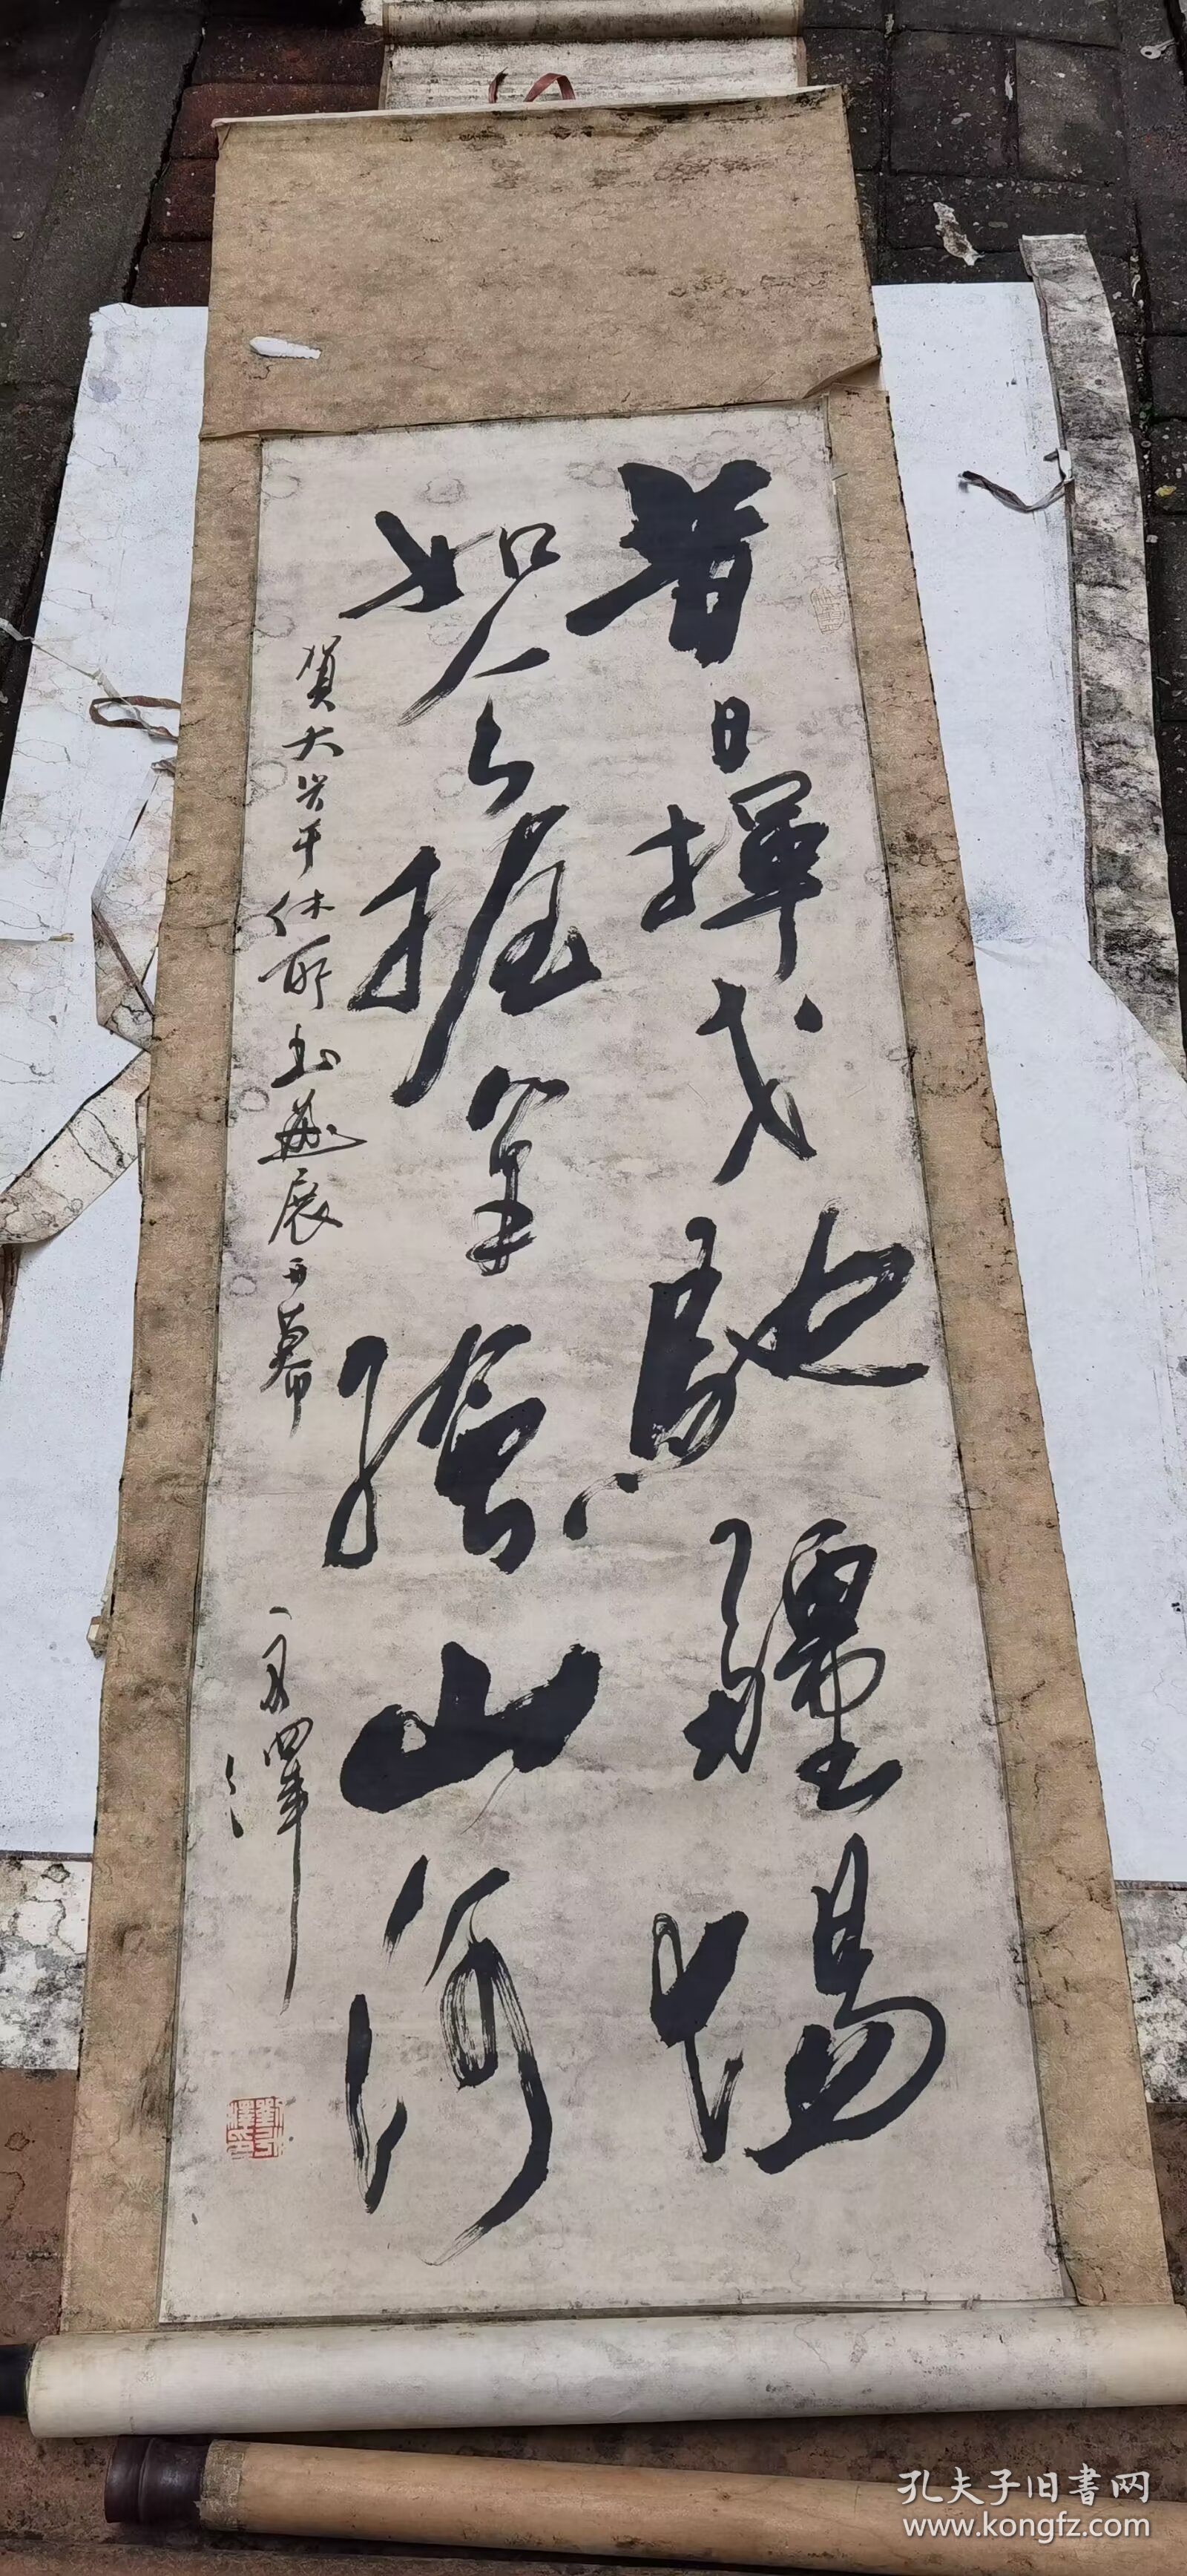 昔日揮戈馳疆場
如今握筆繪山河
賀大興干休所書畫展開幕
孔夫子旧書网
www.kongfz.com